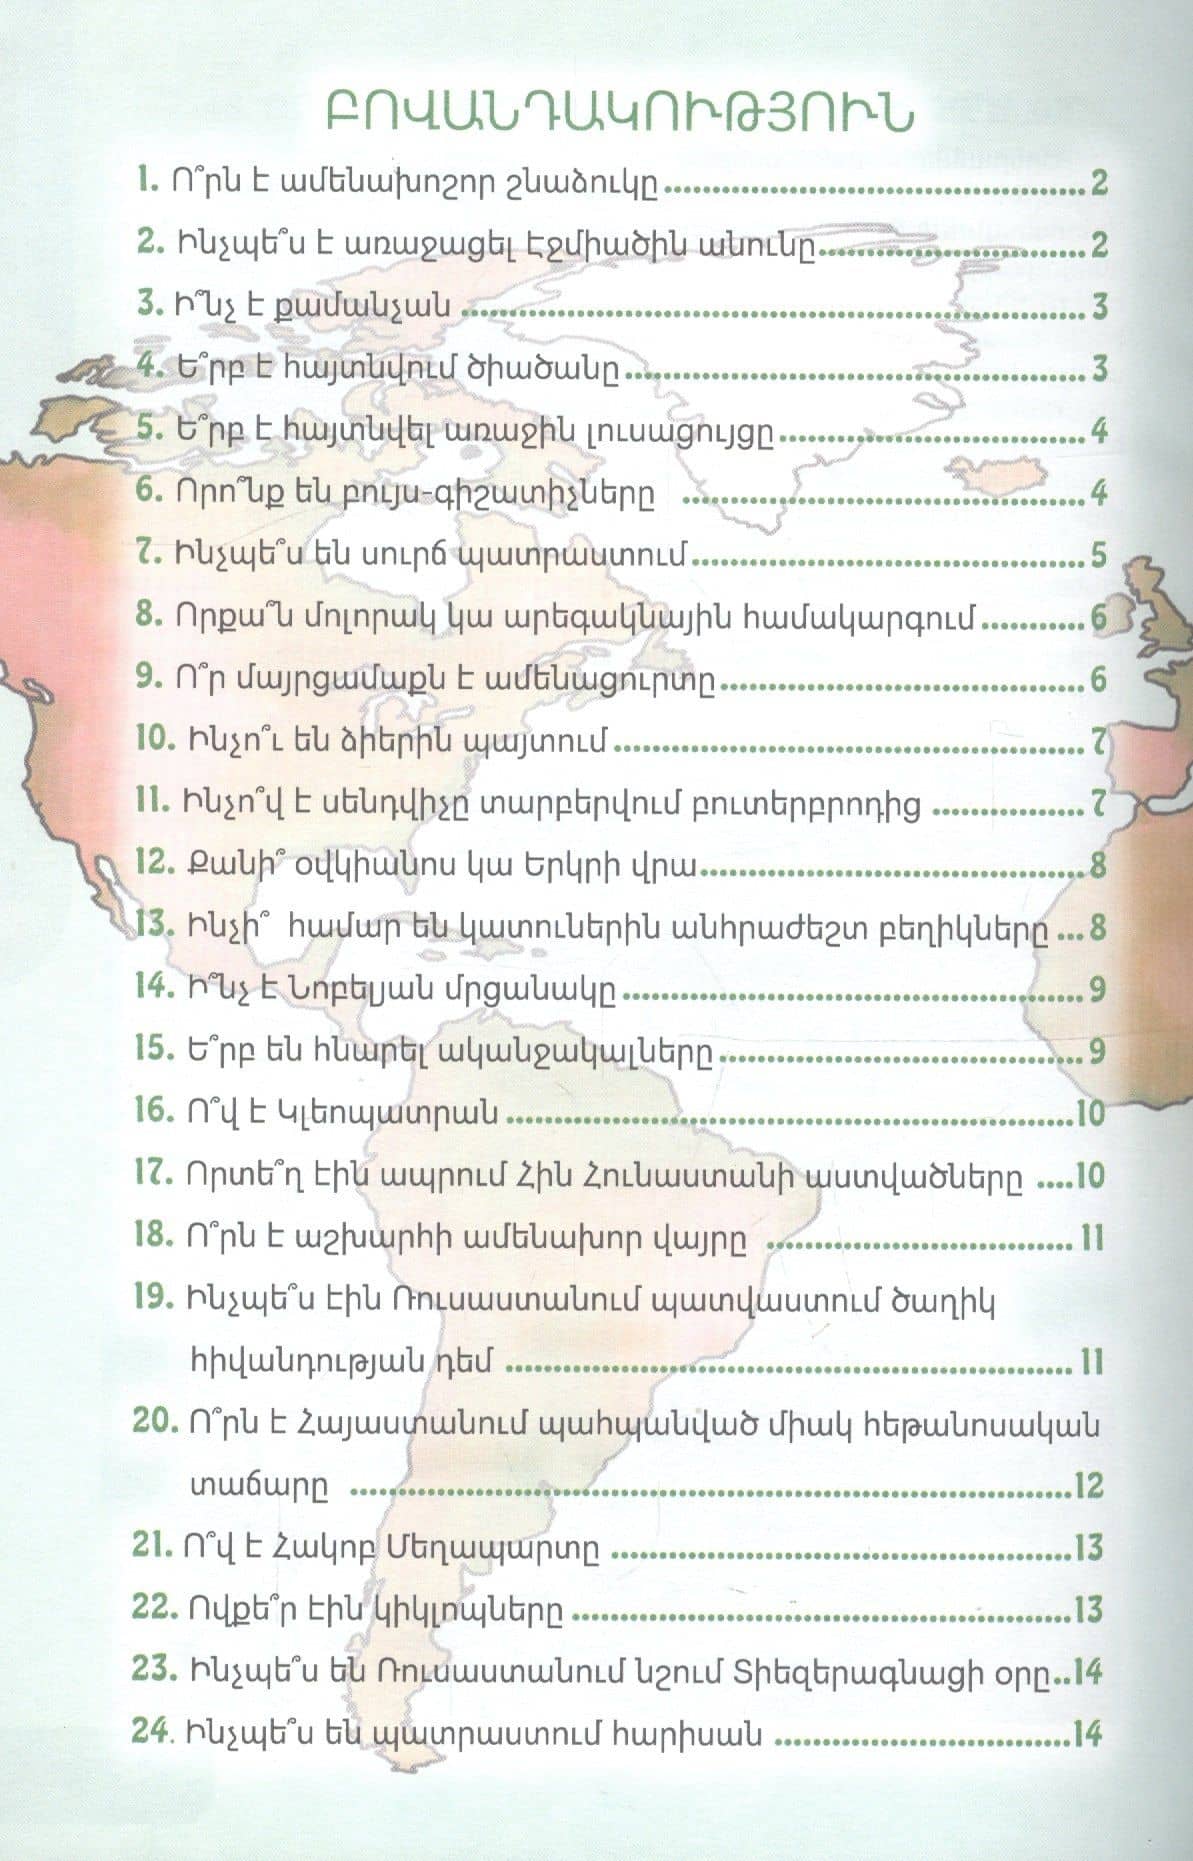 ԲՈՎԱՆԴԱԿՈՒԹՅՈՒՆ
1. Ո՞րն է ամենախոշոր շնաձուկը........................................2
2. Ինչպե՞ս է առաջացել Էջմիածին անունը........................2
3. Ի՞նչ է քամանչան ........................................................3
4. Ե՞րբ է հայտնվում ծիածանը..........................................3
5. Ե՞րբ է հայտնվել առաջին լուսացույցը............................4
6. Որո՞նք են բույս-գիշատիչները ....................................4
7. Ինչպե՞ս են սուրճ պատրաստում....................................5
8. Որքա՞ն մոլորակ կա արեգակնային համակարգում...........6
9. Ո՞ր մայրցամաքն է ամենացուրտը.................................6
10. Ինչո՞ւ են ձիերին պայտում..........................................7
11. Ինչո՞վ է սենդվիչը տարբերվում բուտերբրոդից ..............7
12. Քանի՞ օվկիանոս կա Երկրի վրա...................................8
13. Ինչի՞ համար են կատուներին անհրաժեշտ բեղիկները ...8
14. Ի՞նչ է Նոբելյան մրցանակը.........................................9
15. Ե՞րբ են հնարել ականջակալները................................9
16. Ո՞վ է Կլեոպատրան ...................................................10
17. Որտե՞ղ էին ապրում Հին Հունաստանի աստվածները ....10
18. Ո՞րն է աշխարհի ամենախոր վայրը ............................11
19. Ինչպե՞ս էին Ռուսաստանում պատվաստում ծաղիկ
հիվանդության դեմ ...................................................11
20. Ո՞րն է Հայաստանում պահպանված միակ հեթանոսական
տաճարը .................................................................12
21. Ո՞վ է Հակոբ Մեղապարտը .........................................13
22. Ովքե՞ր էին կիկլոպները.............................................13
23. Ինչպե՞ս են Ռուսաստանում նշում Տիեզերագնացի օրը..14
24. Ինչպե՞ս են պատրաստում հարիսան ...........................14